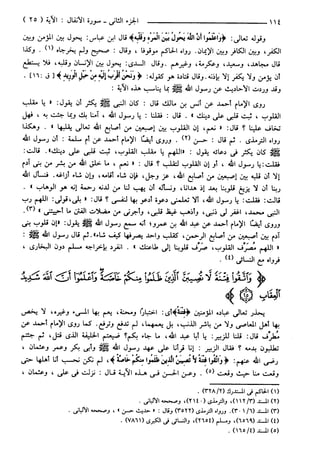 ١١٤ الجزء الثاني - سورة الأنفال : الآية ( ٢٥ )
وقوله تعالى: ﴿وَاعْلَمُوا أَنَّ اللَّهَ يَحُولُ بَيْنَ الْمَرْءِ وَقَلْبِهِ﴾ قال ابن عباس: يحول بين المؤمن وبين
الكفر، وبين الكافر وبين الإيمان. رواه الحاكم موقوفا ، وقال : صحيح ولم يخرجاه (١) . وكذا
قال مجاهد، وسعيد، وعكرمة، وغيرهم . وقال السدي: يحول بين الإنسان وقلبه، فلا يستطيع
أن يؤمن ولا يكفر إلا بإذنه. وقال قتادة هو كقوله: ﴿وَنَحْنُ أَقْرَبُ إِلَيْهِ مِنْ حَبْلِ الْوَرِيدِ﴾ [ ق : ١٦ ] .
وقد وردت الأحاديث عن رسول الله ﷺ بما يناسب هذه الآية :
روى الإمام أحمد عن أنس بن مالك قال : كان النبي ﷺ يكثر أن يقول: « يا مقلب
القلوب ، ثبت قلبي على دينك » . قال : فقلنا : يا رسول الله ، آمنا بك وبما جئت به ، فهل
تخاف علينا ؟ قال : « نعم، إن القلوب بين إصبعين من أصابع الله تعالى يقلبها » . وهكذا
رواه الترمذي . ثم قال : حسن (٢) . وروى أيضًا الإمام أحمد عن أم سلمة : أن رسول الله
ﷺ كان يكثر في دعائه يقول : «اللهم يا مقلب القلوب، ثبت قلبي على دينك». قالت:
فقلت:يا رسول الله ، أو إن القلوب لتتقلب ؟ قال : « نعم ، ما خلق الله من بشر من بني آدم
إلا أن قلبه بين إصبعين من أصابع الله، عز وجل، فإن شاء أقامه، وإن شاء أزاغه. فنسأل الله
ربنا أن لا يزيغ قلوبنا بعد إذ هدانا، ونسأله أن يهب لنا من لدنه رحمة إنه هو الوهاب » .
قالت: فقلت: يا رسول الله، ألا تعلمني دعوة أدعو بها لنفسي ؟ قال : «بلى،قولي: اللهم رب
النبي محمد، اغفر لي ذنبي، وأذهب غيظ قلبي، وأجرني من مضلات الفتن ما أحييتني » (٣).
وروى أيضًا الإمام أحمد عن عبد الله بن عمرو؛ أنه سمع رسول الله ﷺ يقول: «إن قلوب بني
آدم بين أصبعين من أصابع الرحمن، كقلب واحد يصرفها كيف شاء». ثم قال رسول الله ﷺ :
« اللهم مصرف القلوب، صرِّف قلوبنا إلى طاعتك » . انفرد بإخراجه مسلم دون البخاري ،
فرواه مع النسائي (٤) .
﴿وَاتَّقُوا فِتْنَةً لَّا تُصِيبَنَّ الَّذِينَ ظَلَمُوا مِنكُمْ خَاصَّةً وَاعْلَمُوا أَنَّ اللَّهَ شَدِيدُ
الْعِقَابِ (٢٥)﴾
يحذر تعالى عباده المؤمنين ﴿فِتْنَةً﴾ أي: اختباراً ومحنة، يعم بها المسيء وغيره، لا يخص
بها أهل المعاصي ولا من باشر الذنب، بل يعمهما، لم تدفع وترفع . كما روى الإمام أحمد عن
مطرف قال: قلنا للزبير: يا أبا عبد الله، ما جاء بكم؟ ضيعتم الخليفة الذي قتل، ثم جئتم
تطلبون بدمه ؟ فقال الزبير : إنا قرأنا على عهد رسول الله ﷺ وأبي بكر وعمر وعثمان ،
رضي الله عنهم: ﴿وَاتَّقُوا فِتْنَةً لَّا تُصِيبَنَّ الَّذِينَ ظَلَمُوا مِنكُمْ خَاصَّةً﴾، لم نكن نحسب أنا أهلها حتى
وقعت منا حيث وقعت (٥) . وعن الحسن في هذه الآية قال : نزلت في علي ، وعثمان ،
(١) الحاكم في المستدرك (٣٢٨/٢) .
(٢) المسند (١١٢/٣)، والترمذي (٢١٤٠)، وصححه الألباني .
(٣) المسند (٣٠١/٦) ورواه الترمذي (٣٥٢٢) وقال : « حديث حسن » ، وصححه الألباني .
(٤) المسند (٦٥٦٩)، ومسلم (٢٦٥٤)، والنسائي في الكبرى (٧٨٦١) .
(٥) المسند (١٦٥/١) .